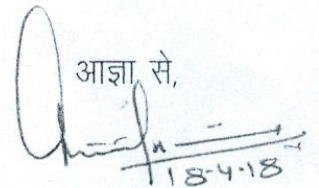 आज्ञा से,
18-4-18